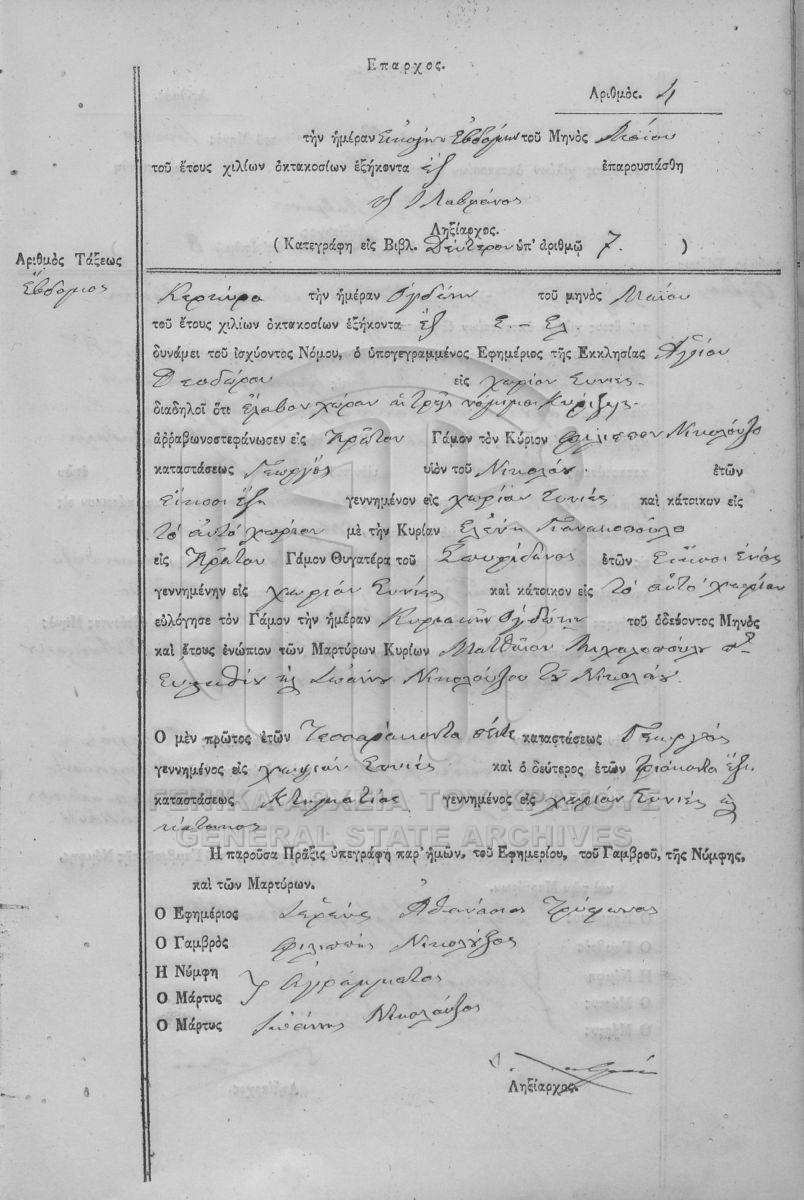 Επαρχος.
Ἀριθμὸς. 4
τὴν ἡμέραν Εἰκοστὴν Εβδόμην τοῦ Μηνὸς Μαΐου
τοῦ ἔτους χιλίων ὀκτακοσίων ἑξήκοντα ἓξ ἐπαρουσιάσθη
Ληξίαρχος.
( Κατεγράφη εἰς Βιβλ. Δεύτερον ὑπ' ἀριθμῷ 7. )
Ἀριθμὸς Τάξεως
Ἕβδομος
Κερκύρα τὴν ἡμέραν Ὀγδόην τοῦ μηνὸς Μαΐου
τοῦ ἔτους χιλίων ὀκτακοσίων ἑξήκοντα ἓξ Ε. – Ελ.
δυνάμει τοῦ ἰσχύοντος Νόμου, ὁ ὑπογεγραμμένος Ἐφημέριος τῆς Ἐκκλησίας Ἁγίου
Θεοδώρου εἰς χωρίον Συνιές.
διαδηλοῖ ὅτι ἔλαβον χώραν αἱ τρεῖς νόμιμοι Κυρίξεις.
ἀῤῥαβωνοστεφάνωσεν εἰς Πρῶτον Γάμον τὸν Κύριον Φίλιππον Νικολούζο
καταστάσεως Γεωργὸς υἱὸν τοῦ Νικολάου. ἐτῶν
εἴκοσι ἕξη γεννημένον εἰς χωρίον Συνιές καὶ κάτοικον εἰς
τὸ αὐτὸ χωρίον μὲ τὴν Κυρίαν Ελένη Γιανακοπούλο
εἰς Πρῶτον Γάμον Θυγατέρα τοῦ Σπυρίδωνος ἐτῶν Εἴκοσι ἑνὸς
γεννημένην εἰς χωρίον Συνιές καὶ κάτοικον εἰς τὸ αὐτὸ χωρίον
εὐλόγησε τὸν Γάμον τὴν ἡμέραν Κυριακὴν Ὀγδόην τοῦ ὁδεύοντος Μηνὸς
καὶ ἔτους ἐνώπιον τῶν Μαρτύρων Κυρίων Ματθαῖον Μιχαλοπούλου τοῦ
Ευσταθίου κ Ιωάννου Νικολούζου τοῦ Νικολάου.
Ὁ μὲν πρῶτος ἐτῶν Τεσσαράκοντα πέντε καταστάσεως Γεωργὸς
γεννημένος εἰς χωρίον Συνιές καὶ ὁ δεύτερος ἐτῶν τριάκοντα ἕξι
καταστάσεως Κτηματίας γεννημένος εἰς χωρίον Συνιές κ
κάτοικος
ΓΕΝΙΚΑ ΑΡΧΕΙΑ ΤΟΥ ΚΡΑΤΟΥΣ
GENERAL STATE ARCHIVES
Ἡ παροῦσα Πρᾶξις ὑπεγράφη παρ' ἡμῶν, τοῦ Ἐφημερίου, τοῦ Γαμβροῦ, τῆς Νύμφης,
καὶ τῶν Μαρτύρων.
Ὁ Ἐφημέριος Ἱερεὺς Ἀθανάσιος Τρύφωνας
Ὁ Γαμβρὸς Φίλιππος Νικολούζος
Ἡ Νύμφη
Ὁ Μάρτυς Ἀγράμματος
Ὁ Μάρτυς Ιωάννης Νικολούζος
Ληξίαρχος.